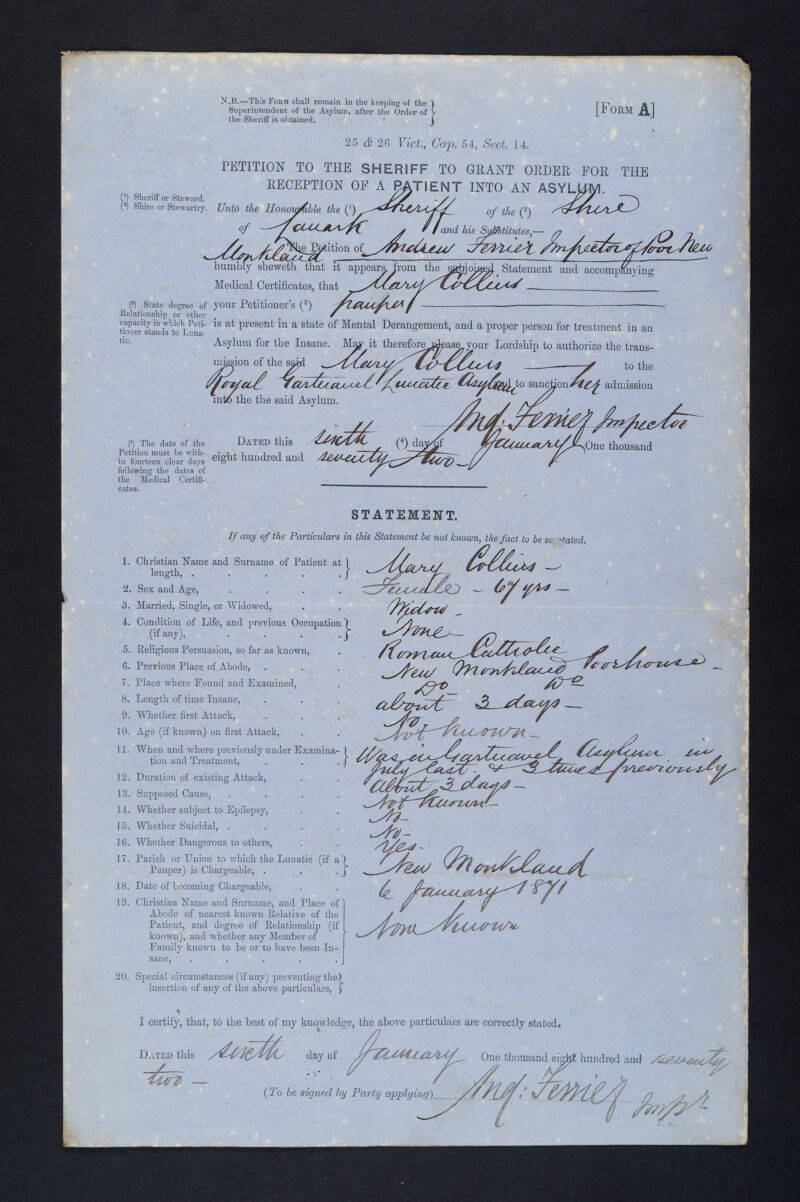 N.B.—This Form shall remain in the keeping of the
Superintendent of the Asylum, after the Order of
the Sheriff is obtained.
[Form A]
25 & 26 Vict., Cap. 54, Sect. 14.
PETITION TO THE SHERIFF TO GRANT ORDER FOR THE
RECEPTION OF A PATIENT INTO AN ASYLUM.
(1) Sheriff or Steward.
(2) Shire or Stewartry.
Unto the Honourable the (1) Sheriff of the (2) Shire
of Lanark and his Substitutes,—
The Petition of Andrew Ferrier Inspector of Poor New
Monkland
humbly sheweth that it appears from the subjoined Statement and accompanying
Medical Certificates, that Mary Collins
(3) State degree of
Relationship or other
capacity in which Peti-
tioner stands to Luna-
tic.
your Petitioner's (3) pauper
is at present in a state of Mental Derangement, and a proper person for treatment in an
Asylum for the Insane. May it therefore please your Lordship to authorize the trans-
mission of the said Mary Collins to the
Royal Gartnavel Lunatic Asylum and to sanction her admission
into the the said Asylum.
And: Ferrier Inspector
(4) The date of the
Petition must be with-
in fourteen clear days
following the dates of
the Medical Certifi-
cates.
Dated this sixth (4) day of January One thousand
eight hundred and seventy two
STATEMENT.
If any of the Particulars in this Statement be not known, the fact to be so stated.
1. Christian Name and Surname of Patient at
length, . Mary Collins
2. Sex and Age, Female - 67 yrs
3. Married, Single, or Widowed, Widow
4. Condition of Life, and previous Occupation
(if any), None
5. Religious Persuasion, so far as known, Roman Catholic
6. Previous Place of Abode, New Monkland Poorhouse
7. Place where Found and Examined, Do Do
8. Length of time Insane, about 3 days
9. Whether first Attack, No
10. Age (if known) on first Attack, Not Known
11. When and where previously under Examina-
tion and Treatment, Was in Gartnavel Asylum in
July last & 3 times previously
12. Duration of existing Attack, about 3 days
13. Supposed Cause, Not Known
14. Whether subject to Epilepsy, No
15. Whether Suicidal, No
16. Whether Dangerous to others, Yes
17. Parish or Union to which the Lunatic (if a
Pauper) is Chargeable, New Monkland
18. Date of becoming Chargeable, 6 January 1871
19. Christian Name and Surname, and Place of
Abode of nearest known Relative of the
Patient, and degree of Relationship (if
known), and whether any Member of
Family known to be or to have been In-
sane, None Known
20. Special circumstances (if any) preventing the
insertion of any of the above particulars,
I certify, that, to the best of my knowledge, the above particulars are correctly stated.
Dated this sixth day of January One thousand eight hundred and seventy
two
(To be signed by Party applying) And: Ferrier Inspr